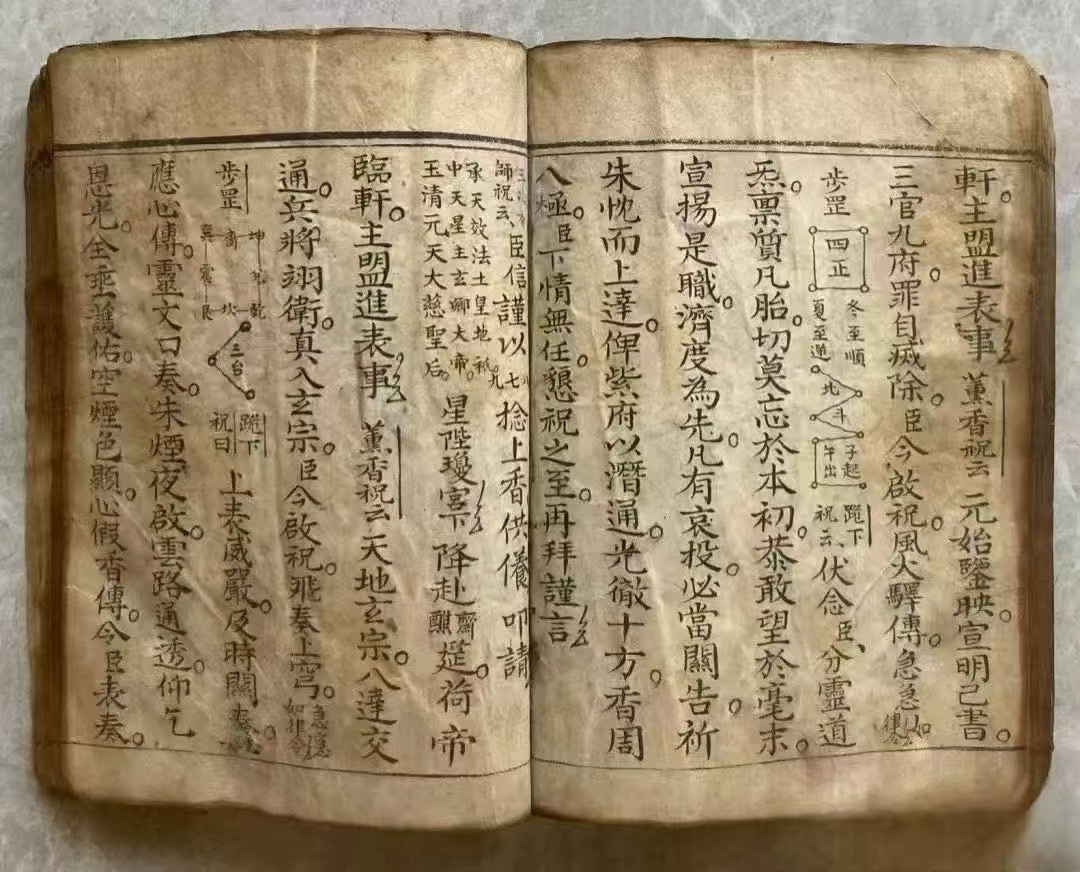 軒主盟進表事 薰香祝云 元始鑒映宣明己書
三官九府罪自滅除臣今啟祝風火驛傳急急如律令
步罡 四正 冬至順 夏至逆 北斗 子起 午出 跪下 祝云 伏念臣分靈道
炁禀質凡胎切莫忘於本初恭敢望於毫末
宣揚是職濟度為先凡有哀投必當關告祈
朱忱而上達俾紫府以潛通光徹十方香周
八極臣下情無任懇祝之至再拜謹言
師祝云臣信謹以九七捻上香供養叩請
承天效法土皇地祇
中天星主玄卿大帝
玉清元天大慈聖后 星陛瓊宮下降赴齋醮筵荷帝
臨軒主盟進表事 薰香祝云天地玄宗八達交
通兵將翊衛真入玄宗臣今啟祝飛奏上穹急急如律令
步罡 坤 兌 乾 坎 艮 震 離 巽 三台 跪下 祝曰 上表威嚴及時關奏
應心傳靈文口奏朱煙夜啟雲路通透仰乞
恩光全乘護佑空煙色顯心假香傳今臣表奏